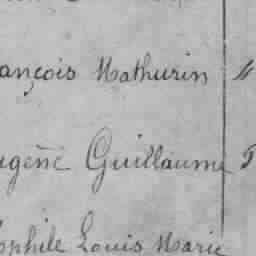 ançois Mathurin
ugène Guillaume
ophile Louis Marie